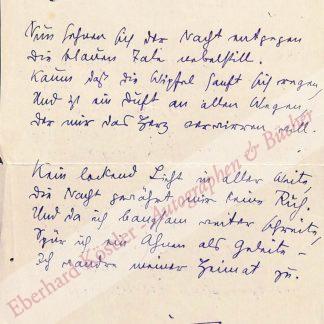 Nun sehnen sich der Nacht entgegen
die blauen Tale nebelstill.
Kaum daß die Wipfel sanft sich regen,
Und ist ein Duft an allen Wegen,
der mir das Herz verwirren will.
Kein lockend Licht in aller Weite,
die Nacht gewährt mir keine Ruh.
Und da ich langsam weiter schreite,
Spür ich ein Ahnen als Geleite –
Ich wandre meiner Heimat zu.
Eberhard Köstler - Autographen & Bücher